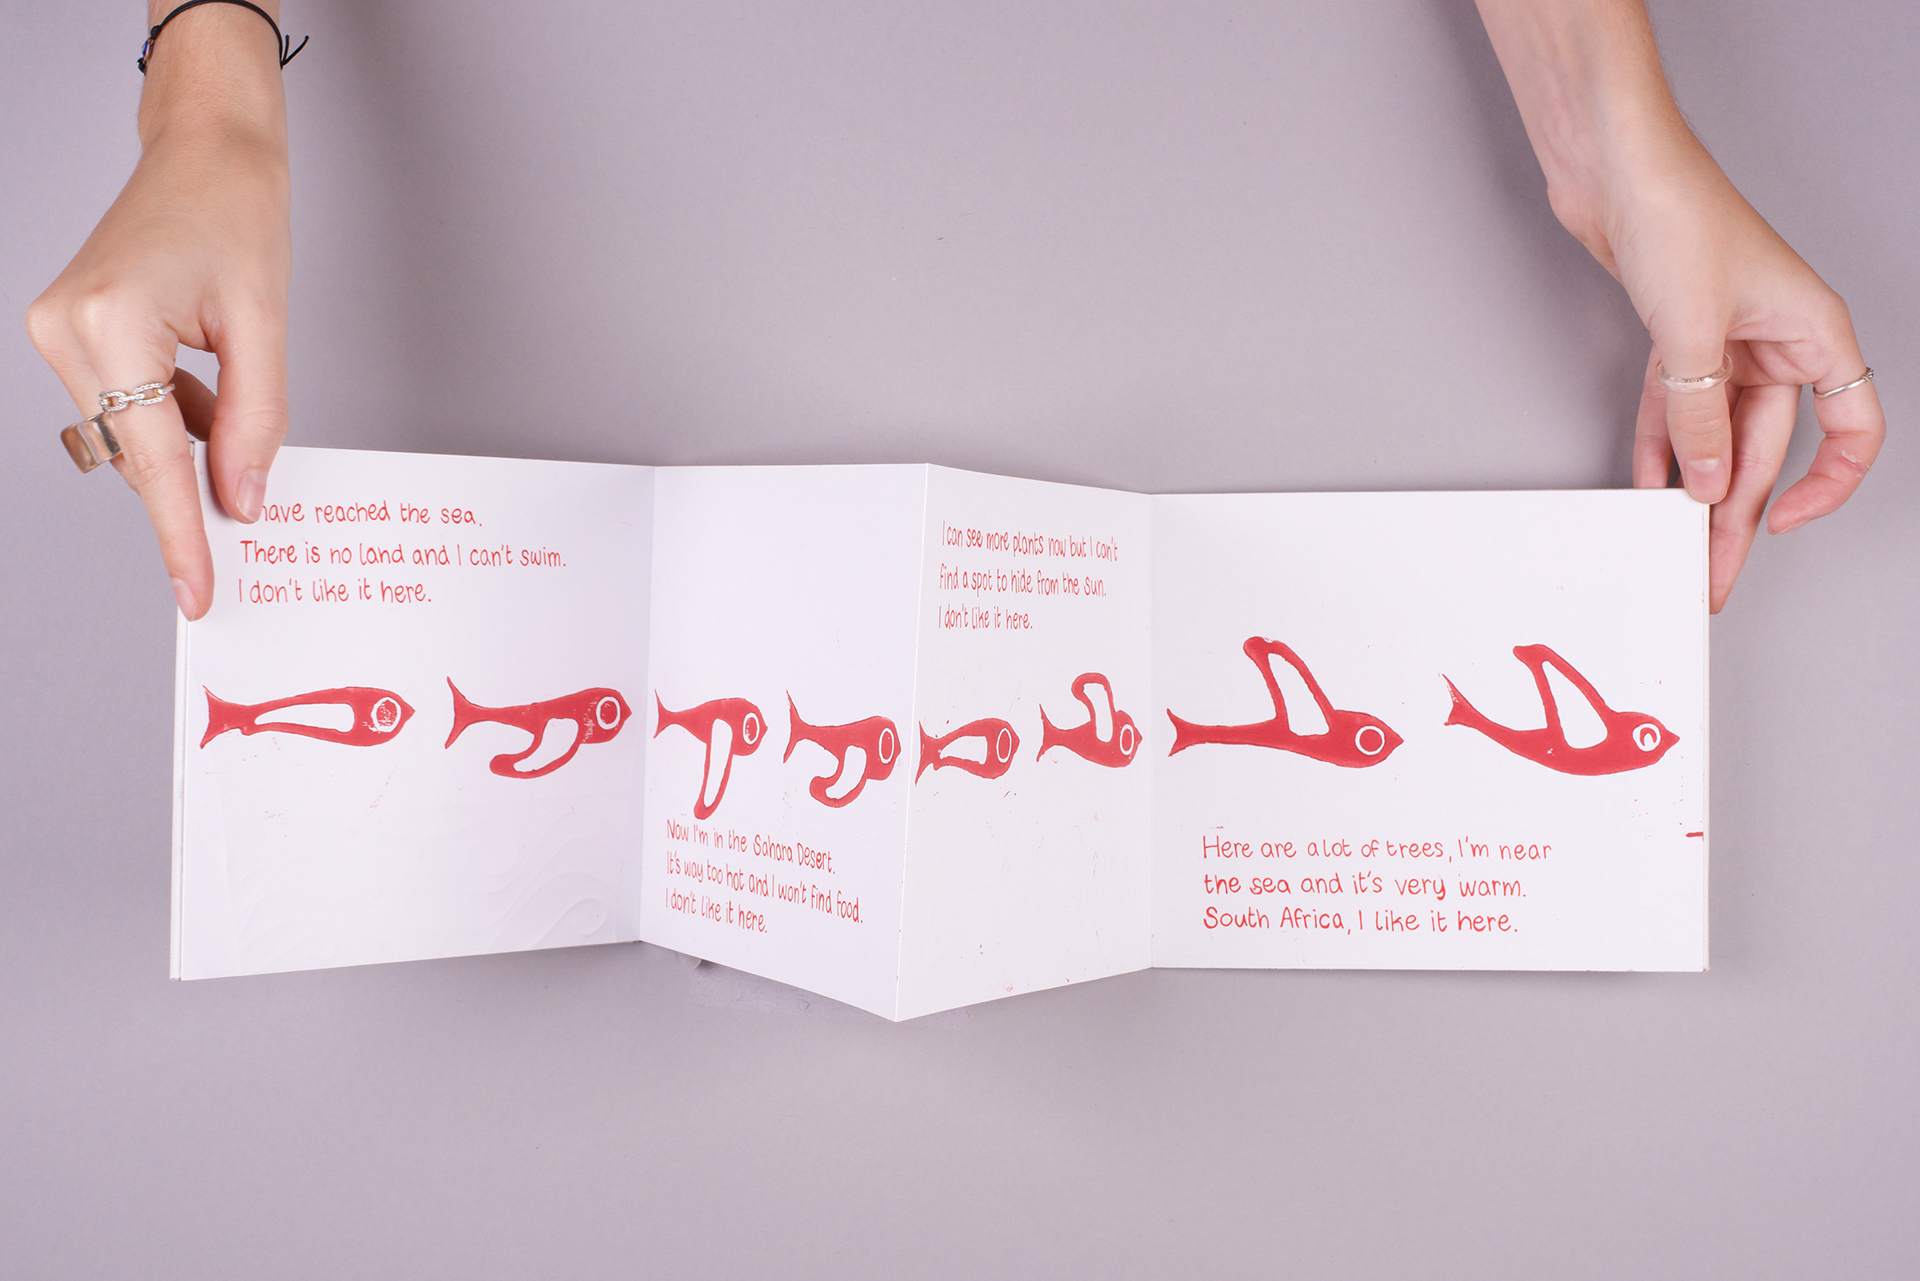 have reached the sea.
There is no land and I can't swim.
I don't like it here.
Now I'm in the Sahara Desert.
It's way too hot and I won't find food.
I don't like it here.
I can see more plants now but I can't
find a spot to hide from the sun.
I don't like it here.
Here are a lot of trees, I'm near
the sea and it's very warm.
South Africa, I like it here.